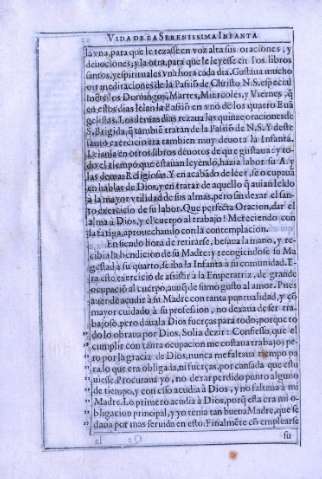 VIDA DE LA SERENISSIMA INFANTA
la vna, para que le rezasse en voz alta sus oraciones, y
deuociones; y la otra, para que le leyesse en los libros
santos, y espirituales vn hora cada dia. Gustaua mucho
en meditaciones de la Passiõ de Christo N.S. especial
los Domingos, Martes, Miercoles, y Viernes, q̃
en estos dias leìan la Passiõ en vno de los quatro Euãgelistas.
Los demas dias rezaua las quinze oraciones de
S. Brigida, q̃ tambiẽ tratan de la Passiõ de N.S. Y de este
santo exercicio era tambien muy deuota la Infanta.
Leìanla en otros libros deuotos de que gustaua: y todo
el tiempo que estauan leyẽdo, hazia labor su A. y
las demas Religiosas. Y en acabãdo de leer, se ocupaua
en hablar de Dios, y en tratar de aquello q̃ auian leido
a la mayor vtilidad de sus almas, pero sin dexar el santo
exercicio de su labor. Que perfecta Oracion, dar el
alma a Dios, y el cuerpo al trabajo! Mereciendo con
la fatiga, aprouechando con la contemplacion.
En siendo hora de retirarse, besaua la mano, y recibia
la bendicion de su Madre; y recogiendose su Magestad
a su quarto, se iba la Infanta a su comunidad. Era
este exercicio de assistir a la Emperatriz, de grande
ocupaciõ al cuerpo, aunq̃ de sumo gusto al amor. Pues
acudir a su Madre con tanta puntualidad, y cõ
mayor cuidado a su profession, no dexaua de ser trabajoso,
pero dauala Dios fuerças para todo; porque todo
lo obraua por Dios. Solia dezir: Confiesso, que el
cumplir con tanta ocupacion me costaua trabajo; pero
por la gracia de Dios, nunca me faltaua tiempo para
lo que era obligada, ni fuerças, por cansada que estuuiesse.
Procuraua yo, no dexar perdido punto alguno
de tiempo, y con esso acudia a Dios, y no faltaua a mi
Madre. Lo primero acudia à Dios, porq̃ esta era mi obligacion
principal, y yo tenia tan buena Madre, que se
daua por mas seruida en esto. Finalmẽte cõ emplearse
su